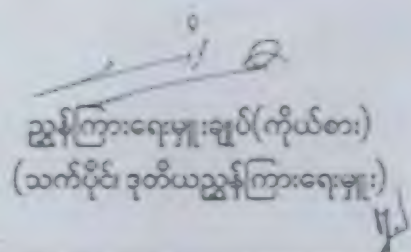 ညွှန်ကြားရေးမှူးချုပ်(ကိုယ်စား)
(သက်ပိုင်၊ ဒုတိယညွှန်ကြားရေးမှူး)